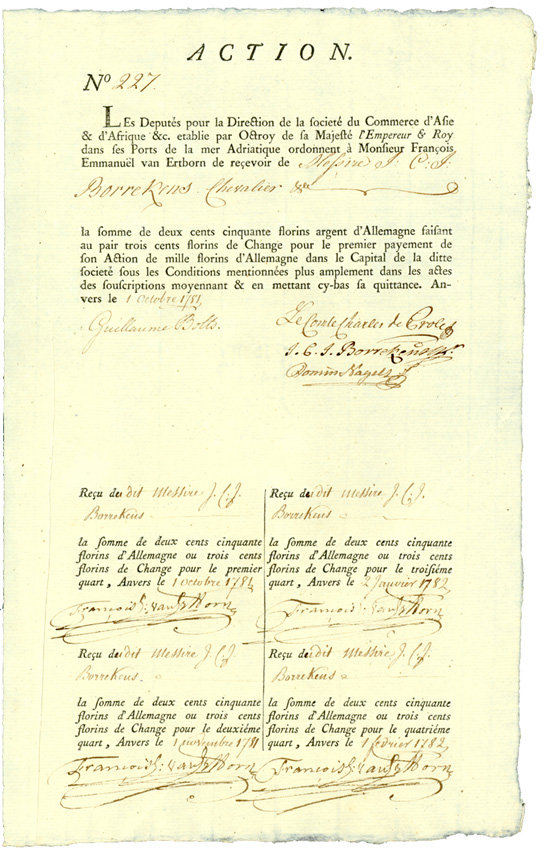 ACTION.
Nº 227.
LEs Deputés pour la Direction de la societé du Commerce d'Asie
& d'Afrique &c. etablie par Octroy de sa Majesté l'Empereur & Roy
dans ses Ports de la mer Adriatique ordonnent à Monsieur François
Emmanuël van Ertborn de reçevoir de Messire J: C: J:
Borrekens Chevalier &c
la somme de deux cents cinquante florins argent d'Allemagne faisant
au pair trois cents florins de Change pour le premier payement de
son Action de mille florins d'Allemagne dans le Capital de la ditte
societé sous les Conditions mentionnées plus amplement dans les actes
des souscriptions moyennant & en mettant cy-bas sa quittance. An-
vers le 1 Octobre 1781.
Guillaume Bolts.
Le Comte Charles de Proli
J. C. J. Borrekens
Domin Nagels
Reçu dudit Messire J. C. J.
Borrekens
la somme de deux cents cinquante
florins d'Allemagne ou trois cents
florins de Change pour le premier
quart, Anvers le 1 octobre 1781
François E: van Ertborn
Reçu dudit Messire J. C. J.
Borrekens
la somme de deux cents cinquante
florins d'Allemagne ou trois cents
florins de Change pour le troisiéme
quart, Anvers le 2 Janvier 1782
François E: van Ertborn
Reçu dudit Messire J. C. J.
Borrekens
la somme de deux cents cinquante
florins d'Allemagne ou trois cents
florins de Change pour le deuxiéme
quart, Anvers le 1 novembre 1781
François E: van Ertborn
Reçu dudit Messire J. C. J.
Borrekens
la somme de deux cents cinquante
florins d'Allemagne ou trois cents
florins de Change pour le quatriéme
quart, Anvers le 1 fevrier 1782
François E: van Ertborn